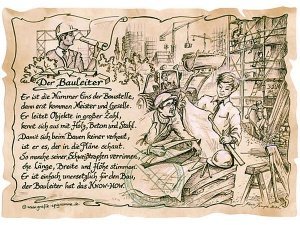 Der Bauleiter
Er ist die Nummer Eins der Baustelle,
dann erst kommen Meister und Geselle.
Er leitet Objekte in großer Zahl,
kennt sich aus mit Holz, Beton und Stahl.
Damit sich beim Bauen keiner verhaut,
ist er es, der in die Pläne schaut.
So manche seiner Schweißtropfen verrinnen,
ehe Länge, Breite und Höhe stimmen.
Er ist einfach unersetzlich für den Bau,
der Bauleiter hat das KNOW-HOW.